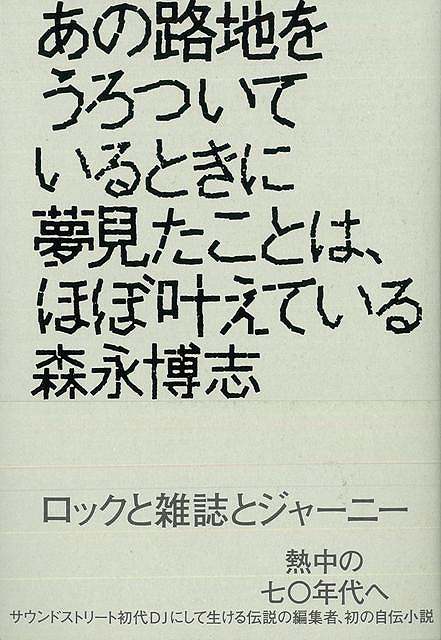 あの路地を
うろついて
いるときに
夢見たことは、
ほぼ叶えている
森永博志
ロックと雑誌とジャーニー
熱中の
七〇年代へ
サウンドストリート初代DJにして生ける伝説の編集者、初の自伝小説